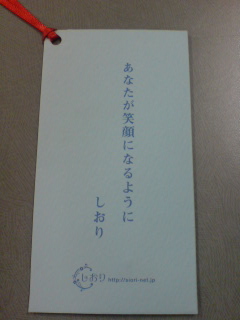 あなたが笑顔になるように
しおり
しおり http://siori-net.jp